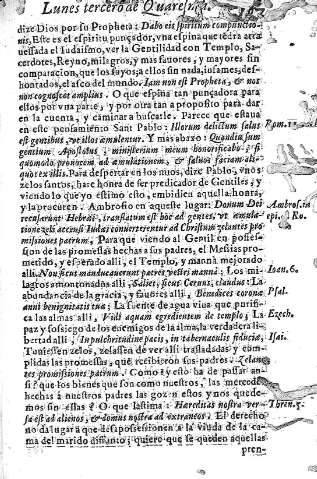 Lunes tercero de Quaresma.
dize Dios por su Propheta: Dabo eis spiritum compunctio-
nis, Este es el espiritu punçador, vna espina que tedra atra
uessada el Iudaismo, ver la Gentilidad con Templo, Sa-
cerdotes, Reyno, milagros, y mas fauores, y mayores sin
comparacion, que los suyos; a ellos sin nada, infames, des-
hontados, el asco del mundo. Iam non est Propheta, & nos
non cognoscet amplius. O que espina tan punçadora para
ellos por vna parte, y por otra tan a proposito para dar
en la cuenta, y caminar a buscarle. Parece que estaua
en este pensamiento Sant Pablo: Illorum delictum salus
est gentibus, vt illos æmulentur. Y mas abaxo: Quandiu sum
gentium Apostolus, ministerium meum honorificabo, si
quomodo prouocem ad æmulationem, & saluos faciam ali-
quos ex illis. Para despertar en los mios, dize Pablo, vnos
zelos santos, hare honra de ser predicador de Gentiles, y
viendo lo que yo estimo esto, embidien aquella honra,
y la procuren. Ambrosio en aqueste lugar: Donum Dei
recusarunt Hebræi, translatum est hoc ad gentes, vt æmula-
tione zeli accensi Iudæi conuerterentur ad Christum zelantes pro
missiones patrum. Para que viendo al Gentil en posses-
sion de las promessas hechas a sus padres, el Messias prome-
tido, y esperado alli, el Templo, y manná mejorado
alli. Non sicut manducauerunt patres vestri manna: Los mi-
lagros amontonados alli, Saliet, sicut Ceruus, claudus: La
abundancia de la gracia, y fauores alli, Benedices coronæ
anni benignitatis tuæ: La fuente de agua viua que purifi-
ca las almas alli, Vidi aquam egredientem de templo; La
paz y sossiego de los enemigos de la alma, la verdadera li-
bertad alli, In pulchritudine pacis, in tabernaculis fiduciæ,
Tuuiessen zelos, zelassen de ver alli trasladadas y com-
plidas las promessas, que recibieron sus padres. Zelan-
tes promissiones patrum. Como? y esto ha de passar an-
si? que los bienes que son como nuestros, las mercedes
hechas à nuestros padres las gozen estos y nos quede-
mos sin ellas? O que lastima: Hæreditas nostra ver-
sa est ad alienos, & domus nostra ad extraneos. El derecho
no da lugar à que desapossessionen a la viuda de la ca-
ma del marido difunto; quiero que se queden aquellas
pren-
Rom. 11.
Ambros. in
epi. Ro.
Ioan. 6.
Psal.
Ezech.
Isai.
Thren. 5.